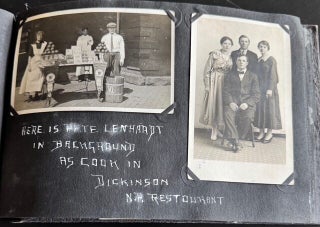 HERE IS PETE LENHARDT
IN BACKGROUND
AS COOK IN
DICKINSON
N.P. RESTAURANT